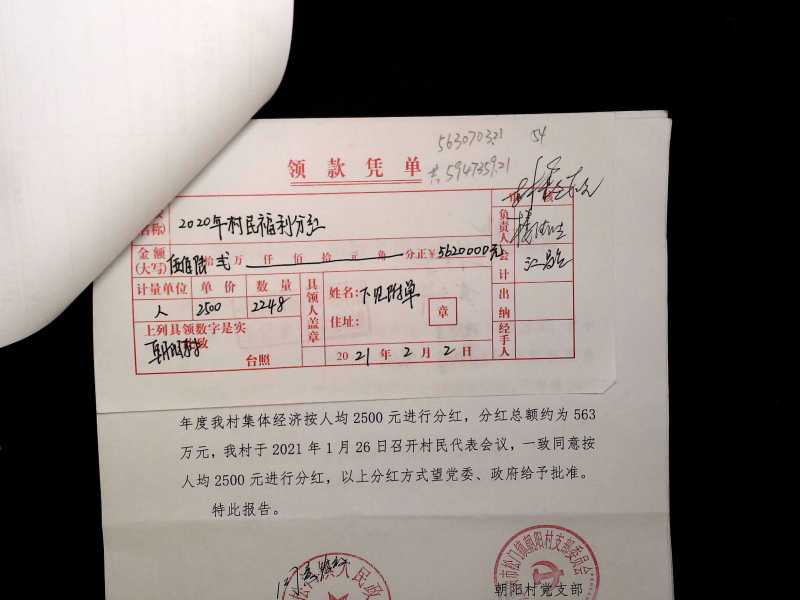 56307032.1 54
领款凭单 共59473592.1
名称) 2020年村民福利分红
金额
(大写) 伍佰陆拾贰万仟佰拾元角分正¥5620000元
计量单位 单价 数量
人 2500 2248
上列具领数字是实
台照
具领人盖章
姓名:下见附单
住址: 章
2021年2月2日
负责人
会计
出纳
经手人
年度我村集体经济按人均2500元进行分红,分红总额约为563
万元,我村于2021年1月26日召开村民代表会议,一致同意按
人均2500元进行分红,以上分红方式望党委、政府给予批准。
特此报告。
松门镇人民政
市松门镇朝阳村支部委员会
朝阳村党支部